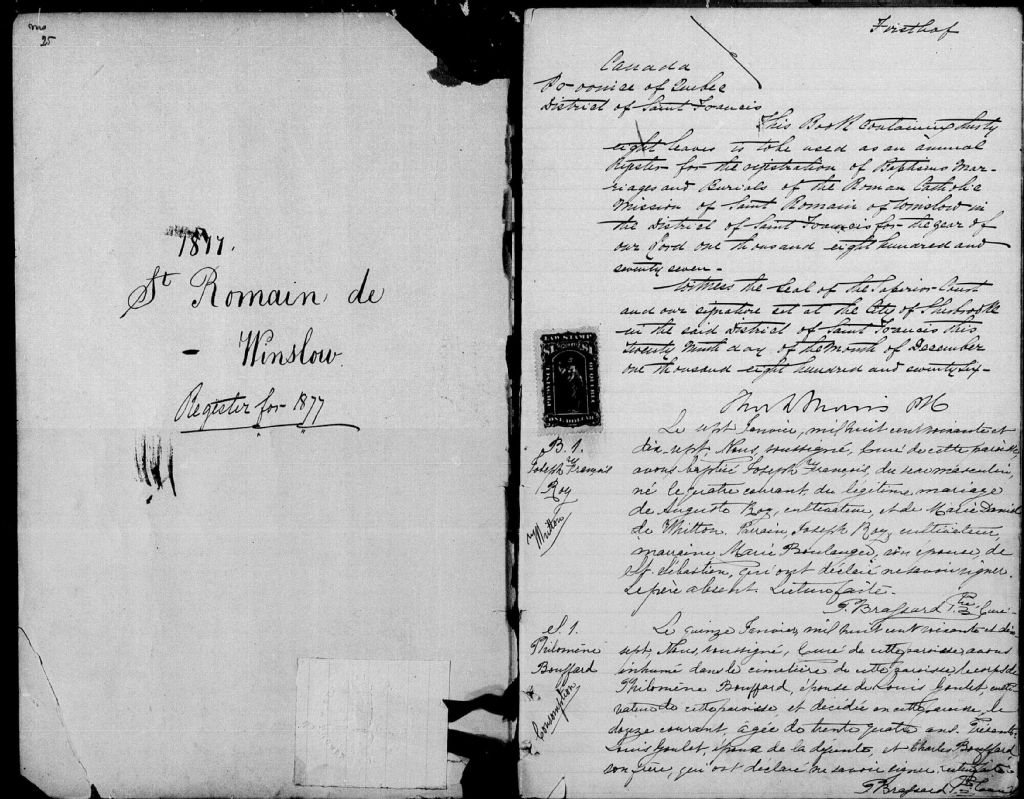 no
25
1877.
St Romain de
- Winslow.
Register for 1877
First hof
Canada
Province of Quebec
District of Saint Francis
This Book containing thirty
eight leaves is to be used as an annual
Register for the registration of Baptisms Mar-
riages and Burials of the Roman Catholic
Mission of Saint Romain of Winslow in
the District of Saint Francis for the year of
our Lord one thousand eight hundred and
seventy seven -
Witness the Seal of the Superior Court
and our signature set at the City of Sherbrooke
in the said District of Saint Francis this
twenty ninth day of the Month of December
one thousand eight hundred and seventy six -
LAW STAMP
$1 $1
PROVINCE OF QUEBEC
ONE DOLLAR
Morris
B. 1.
Joseph François
Roy
Whitton
Le sept Janvier, mil huit cent soixante et
dix-sept, Nous, soussigné, Curé de cette paroisse
avons baptisé Joseph François, du sexe masculin,
né le quatre courant, du légitime mariage
de Auguste Roy, cultivateur, et de Marie
de Whitton. Parrain, Joseph Roy, cultivateur,
marraine Marie Boulanger, son épouse, de
St. Sébastien, qui ont déclaré ne savoir signer.
Le père absent. Lecture faite.
P. Brassard Ptre Curé
S. 1.
Philomène
Bouffard
Consomption
Le quinze Janvier, mil huit cent soixante et dix
sept, Nous, soussigné, Curé de cette paroisse avons
inhumé dans le cimetière de cette paroisse le corps de
Philomène Bouffard, épouse de Louis Goulet, culti-
vateur de cette paroisse, et décédée en cette paroisse, le
douze courant, âgée de trente quatre ans. Présents
Louis Goulet, époux de la défunte, et Charles Bouffard
son frère, qui ont déclaré ne savoir signer. Lecture faite
P. Brassard Ptre Curé